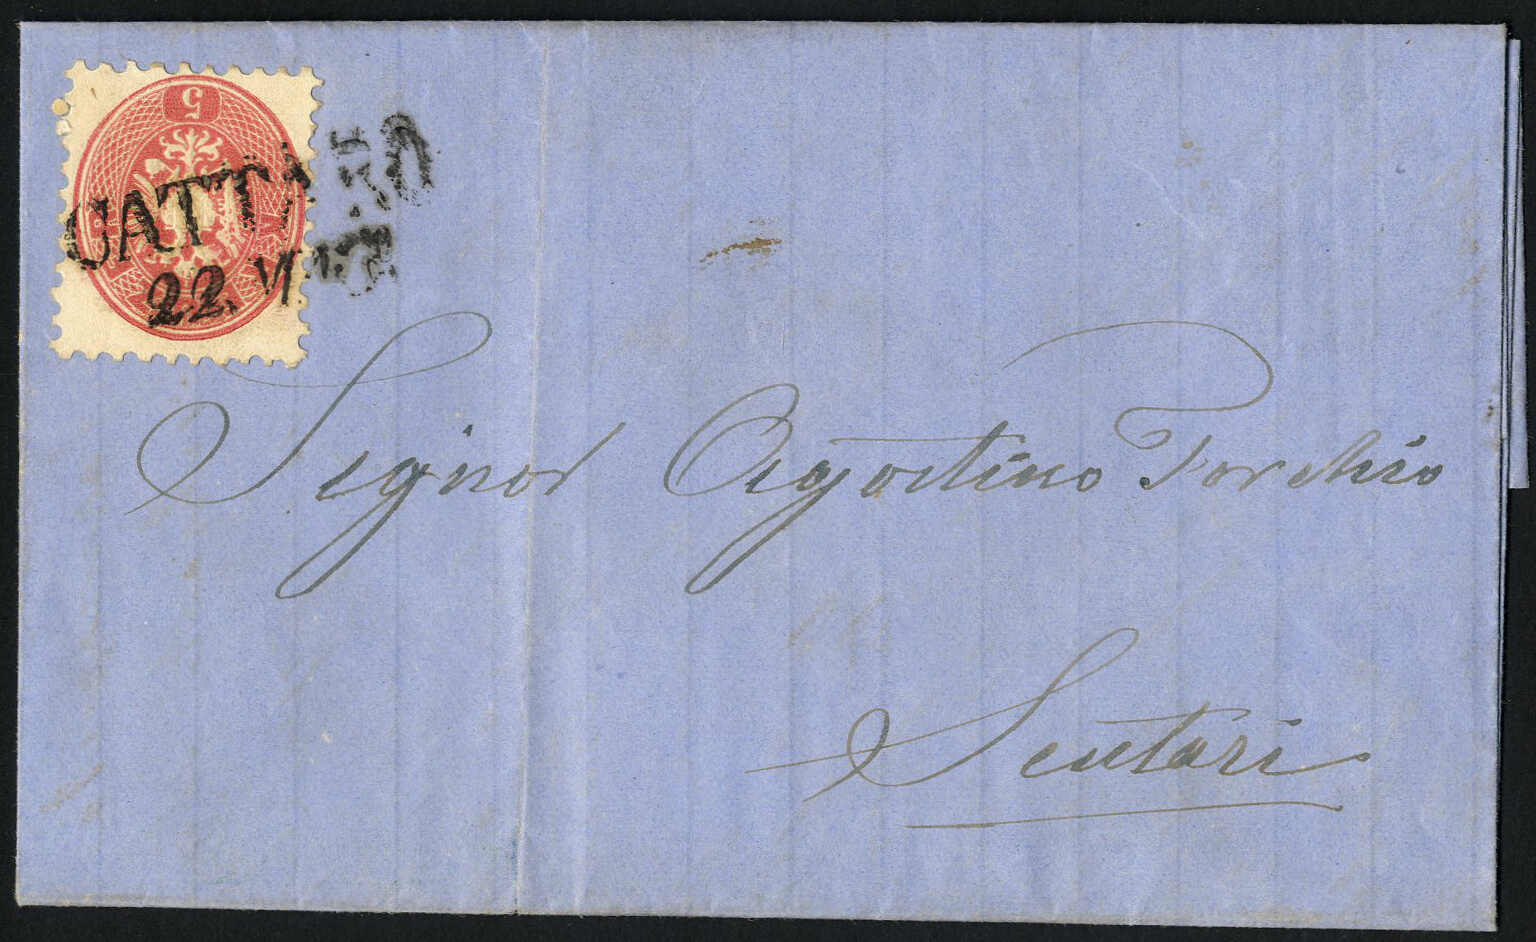 5
CATTARO
22. VII.
Signor Agostino Parchio
Scutari